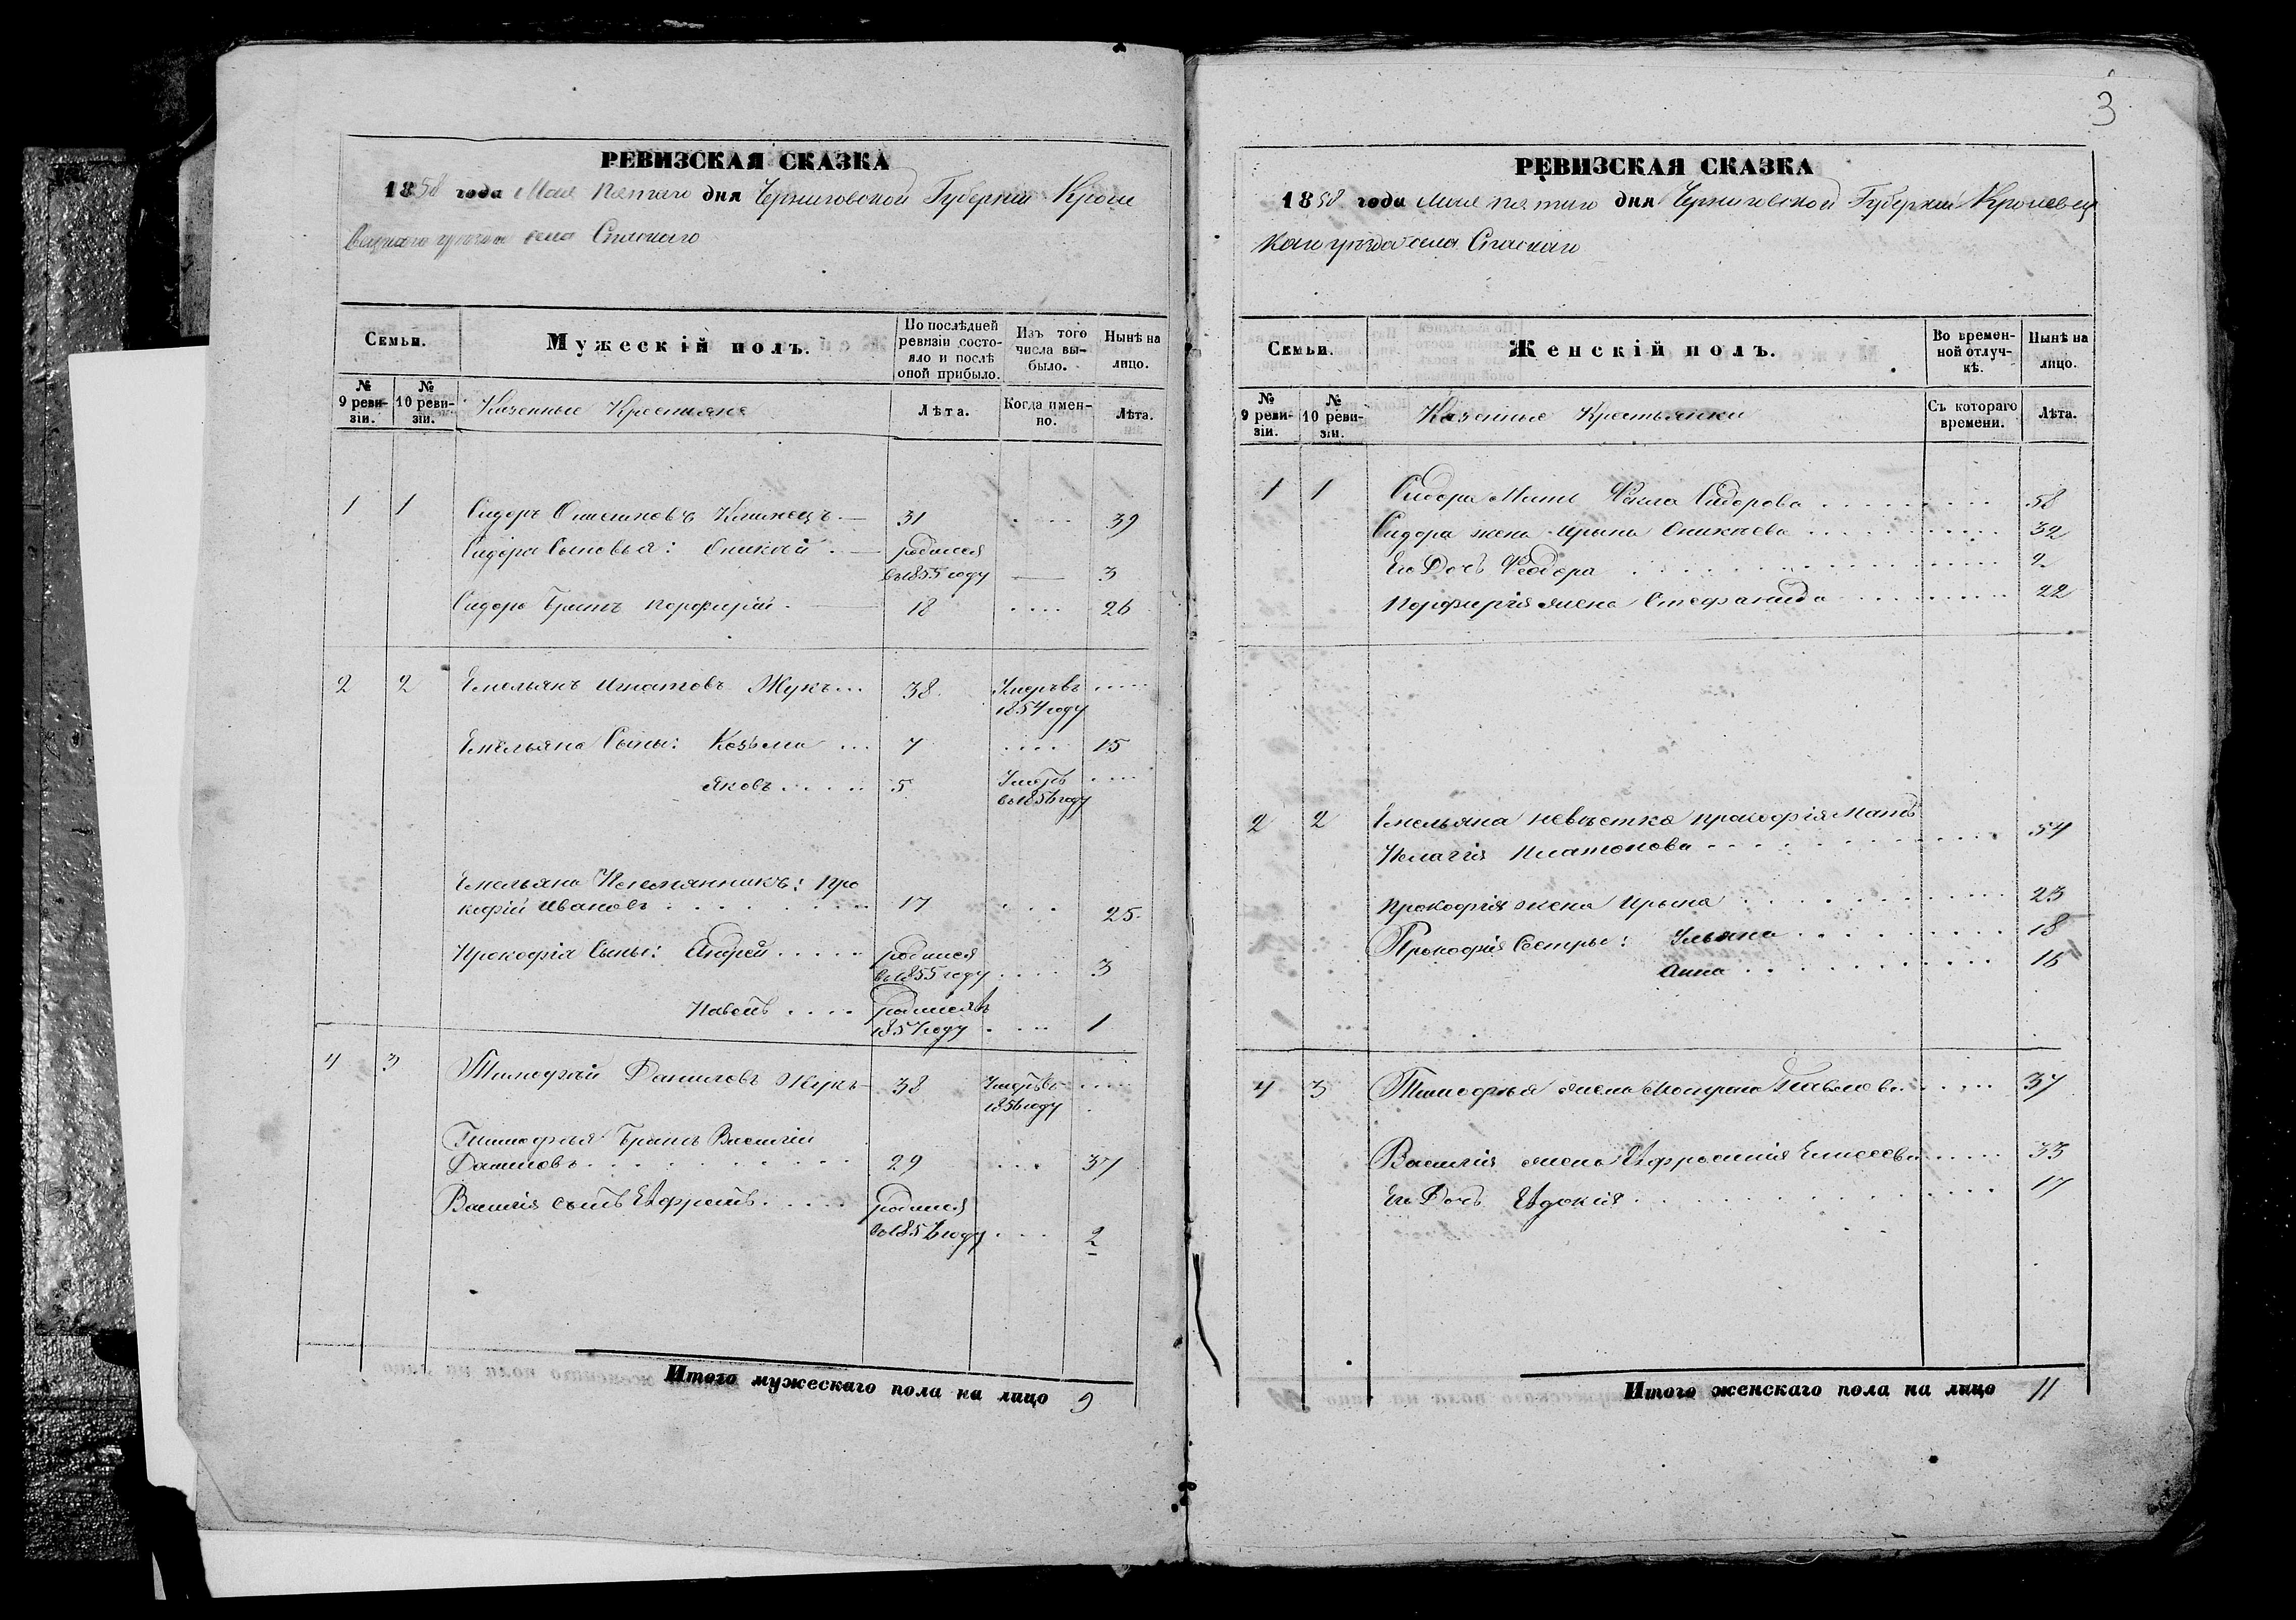 РЕВИЗСКАЯ СКАЗКА
1858 года Мая пятаго дня Черниговской Губерніи Кроле
вецкаго уѣзда села Спаскаго
Семьи.
Мужескій полъ.
По послѣдней ревизіи состояло и послѣ оной прибыло.
Изъ того числа выбыло.
Нынѣ на лицо.
№ 9 ревизіи.
№ 10 ревизіи.
Казенные Крестьяне
Лѣта.
Когда именно.
Лѣта.
1 1 Сидоръ 31 .... 39
Сидора Сыновья: Оникѣй родился
въ 1855 году — 3
Сидора Братъ Порфирій 18 .... 26
2 2 Емельянъ Игнатовъ Жукъ... 38 Умеръ въ .....
1854 году
Емельяна Сыны: Козьма ... 7 .... 15
Яковъ ..... 5 Умеръ ....
въ 1856 году
Емельяна Племянникъ: Про
кофій Ивановъ ........ 17 ... 25
Прокофія Сыны: Андрей ..... родился
въ 1855 году .... 3
Павелъ .... родился въ
1857 году .... 1
4 3 Тимофѣй Даниловъ Жукъ 38 Умеръ въ ....
1856 году
Тимофѣя Братъ Василій
Даниловъ.......... 29 ... 37
Василія сынъ Ефремъ..... родился
въ 1856 году .... 2
Итого мужескаго пола на лицо 9
3
РЕВИЗСКАЯ СКАЗКА
1858 года Мая пятаго дня Черниговской Губерніи Кролевец
каго уѣзда села Спаскаго
Семьи.
Женскій полъ.
Во временной отлучкѣ.
Нынѣ на лицо.
№ 9 ревизіи.
№ 10 ревизіи.
Казенные Крестьянки
Съ котораго времени.
Лѣта.
1 1 Сидора Мать Фекла Сидорова ......... 58
Сидора жена Ирина Оникѣева .......... 32
Его Дочь Феодора ............ 2
Порфирія жена Стефанида .......... 22
2 2 Емельяна невѣстка Прокофія Мать
Пелагія Платонова ............ 54
Прокофія жена Ирина ............ 23
Прокофія Сестры: Ульяна .......... 18
Анна ........... 16
4 3 Тимофѣя жена Павлова ...... 37
Василія жена Ефросинія Елисеева ..... 33
Его Дочь Евдокія ............ 17
Итого женскаго пола на лицо 11